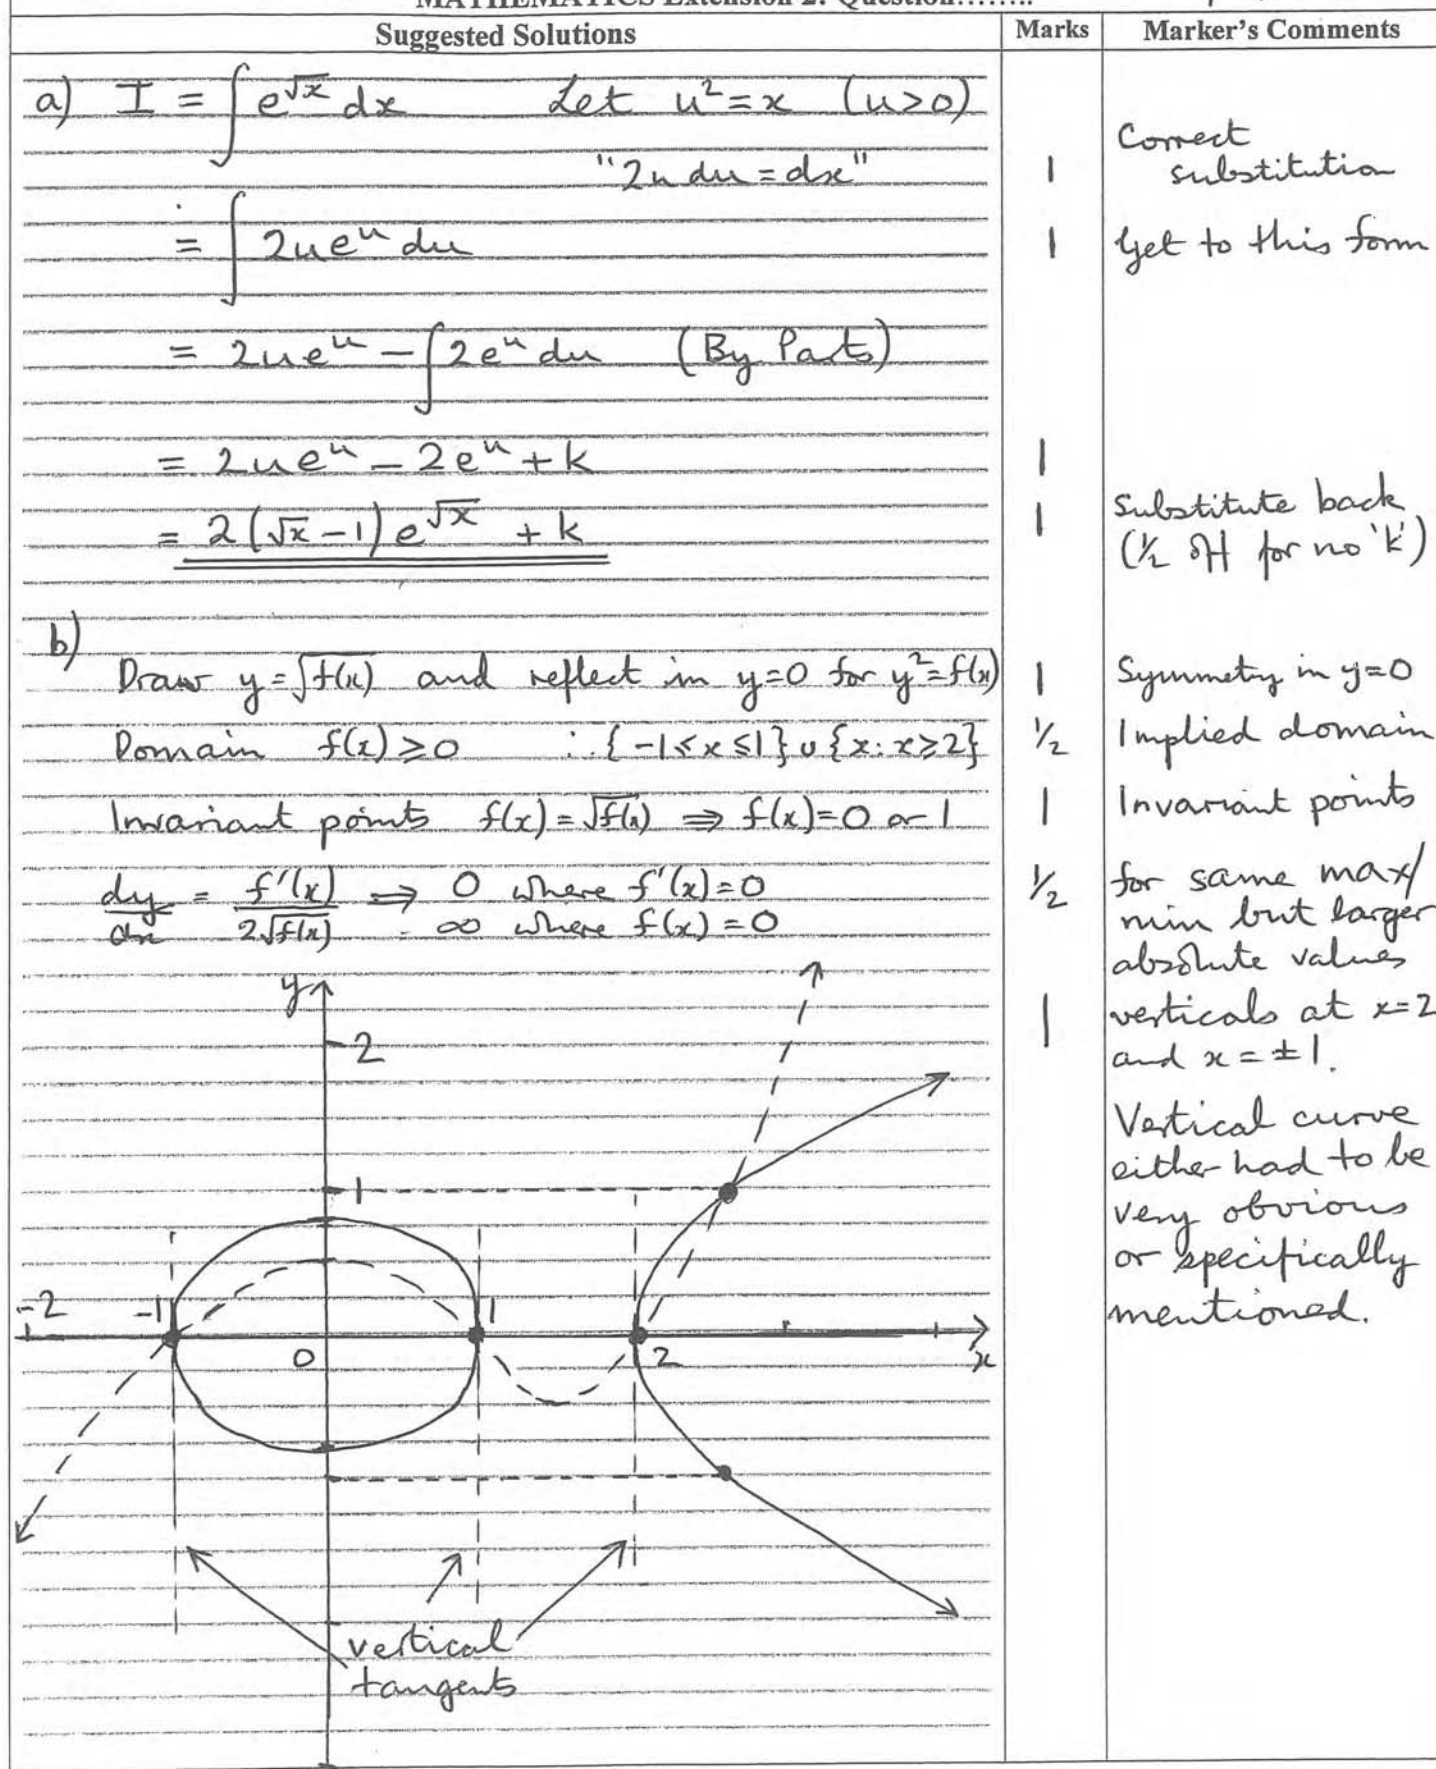 MATHEMATICS Extension 2: Question........
Suggested Solutions Marks Marker's Comments
a) I = ∫ e^√x dx Let u² = x (u>0)
"2u du = dx" 1 Correct substitution
= ∫ 2u e^u du 1 Get to this form
= 2u e^u − ∫ 2e^u du (By Parts)
= 2u e^u − 2e^u + k 1
= 2(√x − 1) e^√x + k 1 Substitute back
(½ off for no 'k')
b)
Draw y = √f(x) and reflect in y=0 for y² = f(x) 1 Symmetry in y=0
Domain f(x) ≥ 0 ∴ {-1 ≤ x ≤ 1} ∪ {x: x ≥ 2} ½ Implied domain
Invariant points f(x) = √f(x) ⇒ f(x) = 0 or 1 1 Invariant points
dy/dx = f'(x)/2√f(x) ⇒ 0 where f'(x) = 0 ½ for same max/
∞ where f(x) = 0 min but larger
absolute values
1 verticals at x=2
and x = ±1.
Vertical curve
either had to be
very obvious
or specifically
mentioned.
y
2
1
-2 -1 0 1 2 x
vertical
tangents